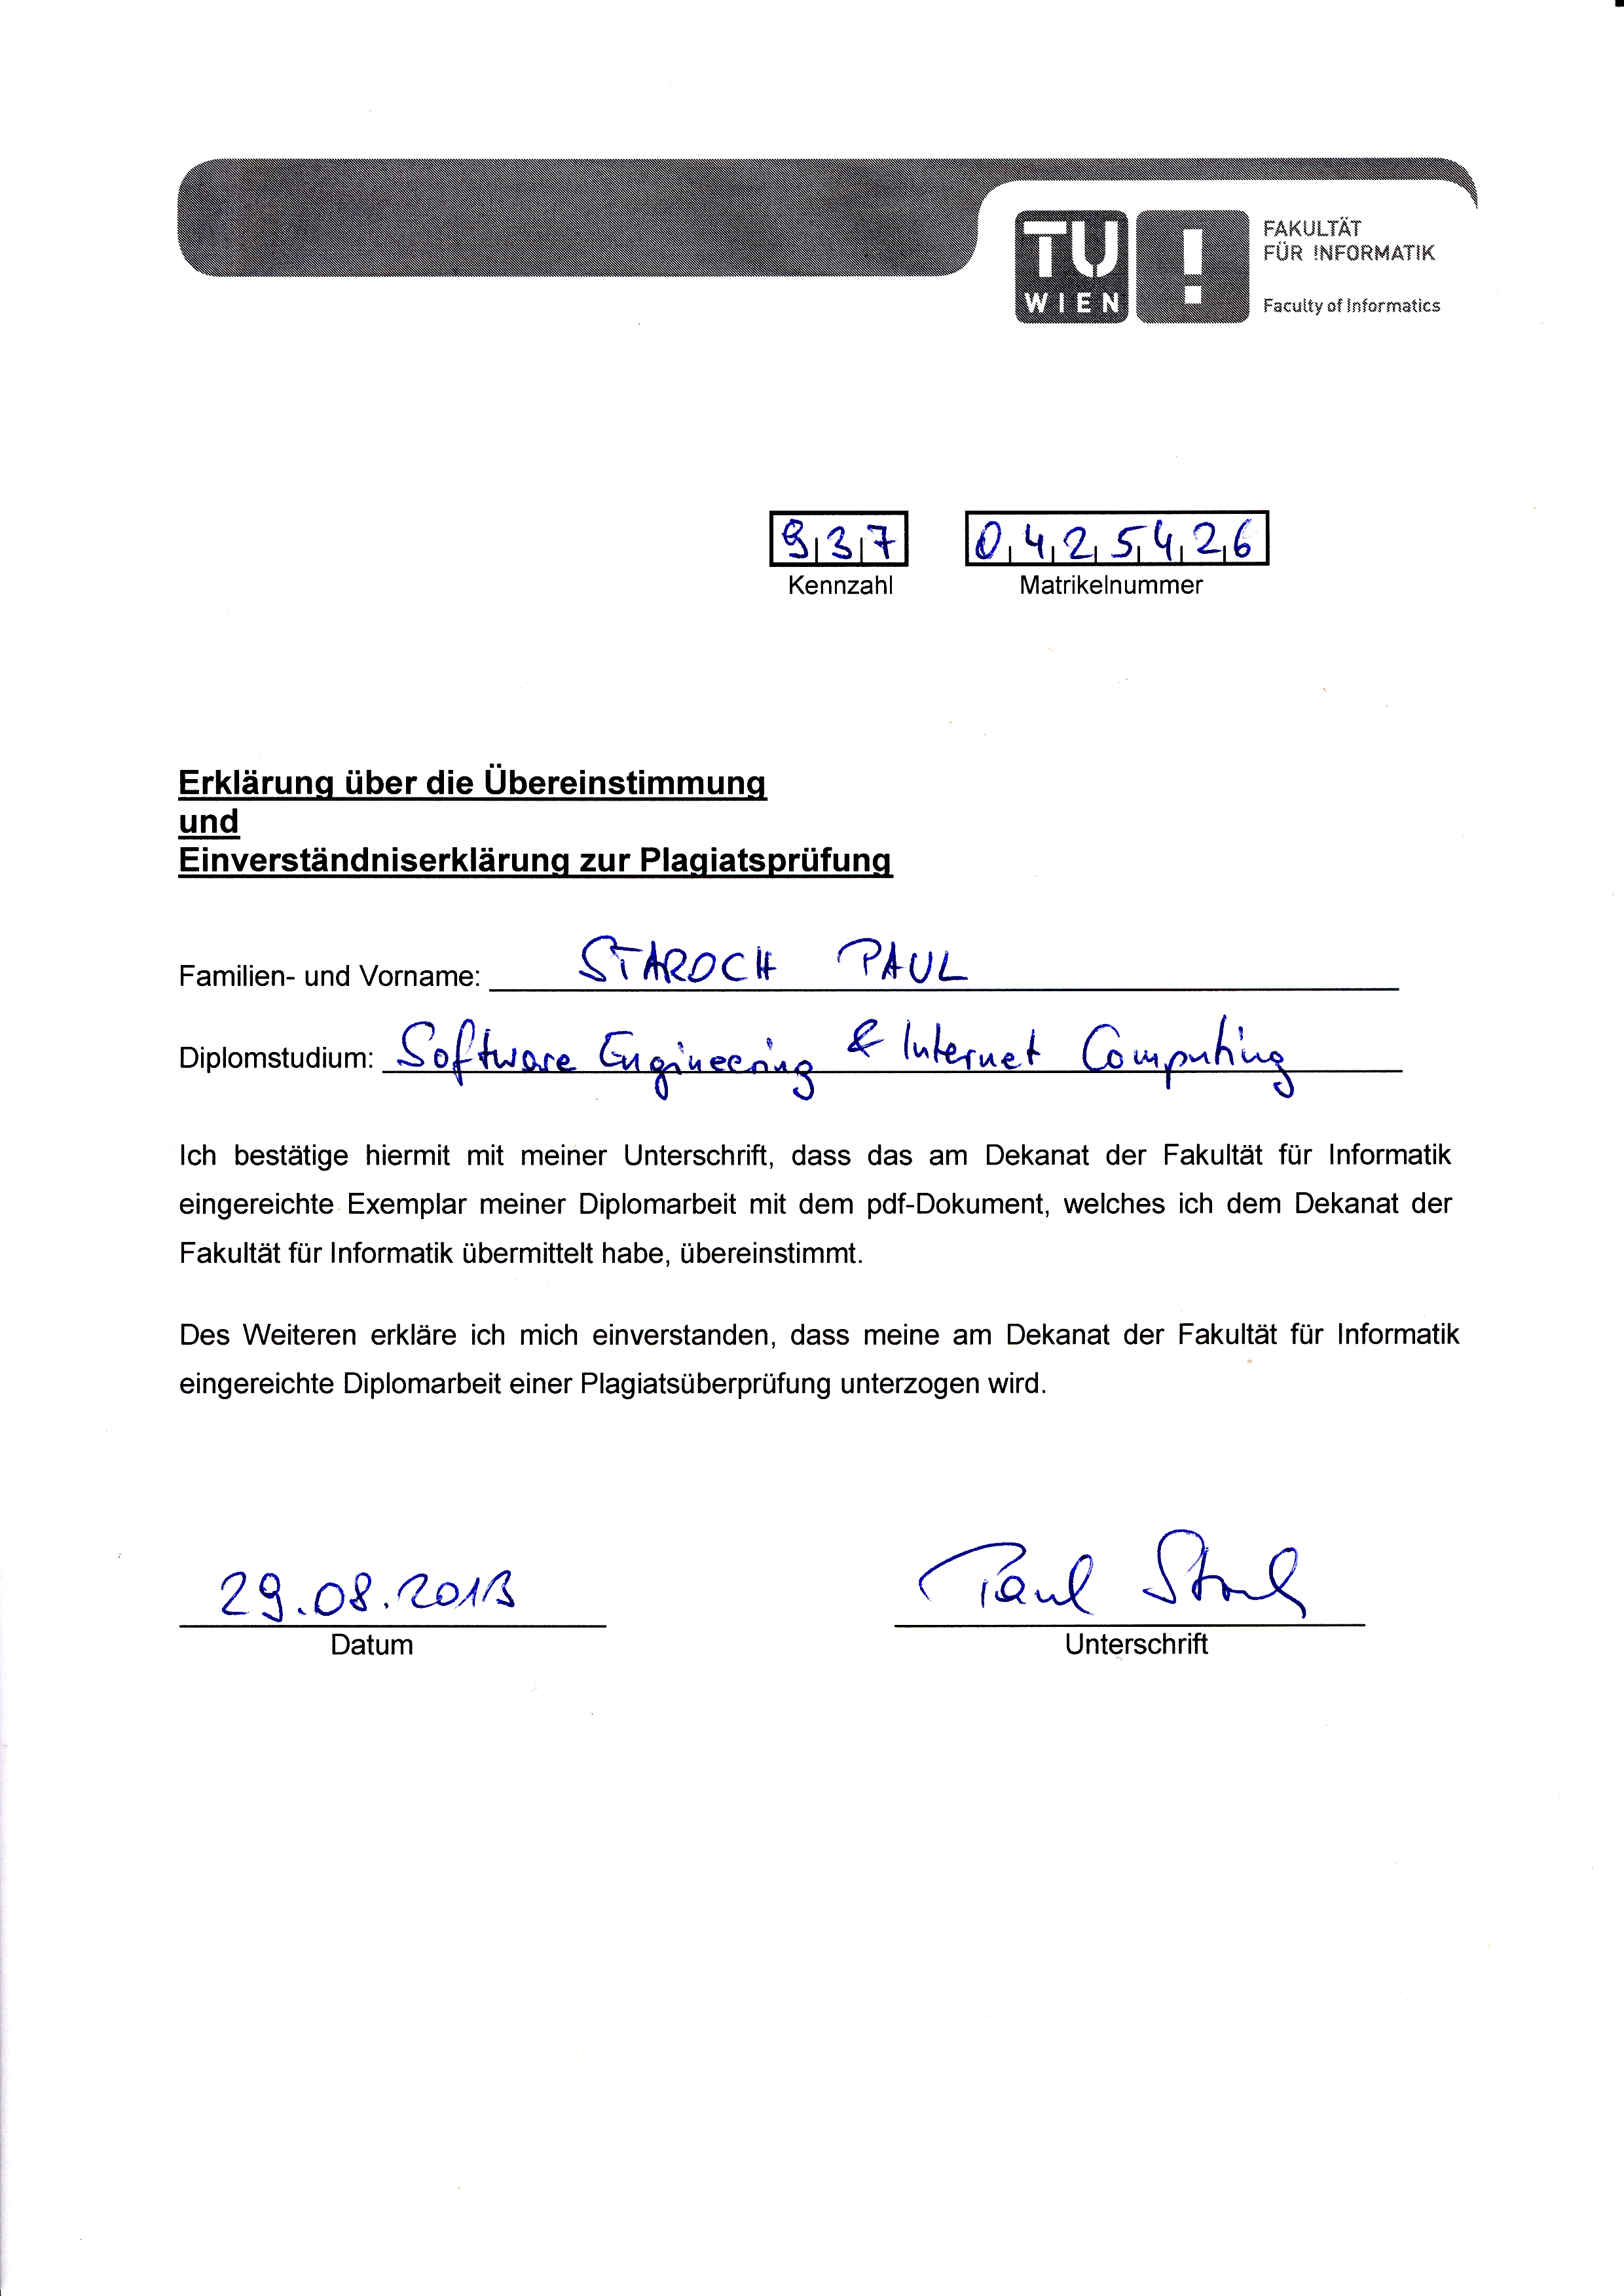 TU
WIEN
!
FAKULTÄT
FÜR !NFORMATIK
Faculty of Informatics
937 0425426
Kennzahl Matrikelnummer
Erklärung über die Übereinstimmung
und
Einverständniserklärung zur Plagiatsprüfung
Familien- und Vorname: STAROCH PAUL
Diplomstudium: Software Engineering & Internet Computing
Ich bestätige hiermit mit meiner Unterschrift, dass das am Dekanat der Fakultät für Informatik
eingereichte Exemplar meiner Diplomarbeit mit dem pdf-Dokument, welches ich dem Dekanat der
Fakultät für Informatik übermittelt habe, übereinstimmt.
Des Weiteren erkläre ich mich einverstanden, dass meine am Dekanat der Fakultät für Informatik
eingereichte Diplomarbeit einer Plagiatsüberprüfung unterzogen wird.
29.08.2013 Paul Staroch
Datum Unterschrift